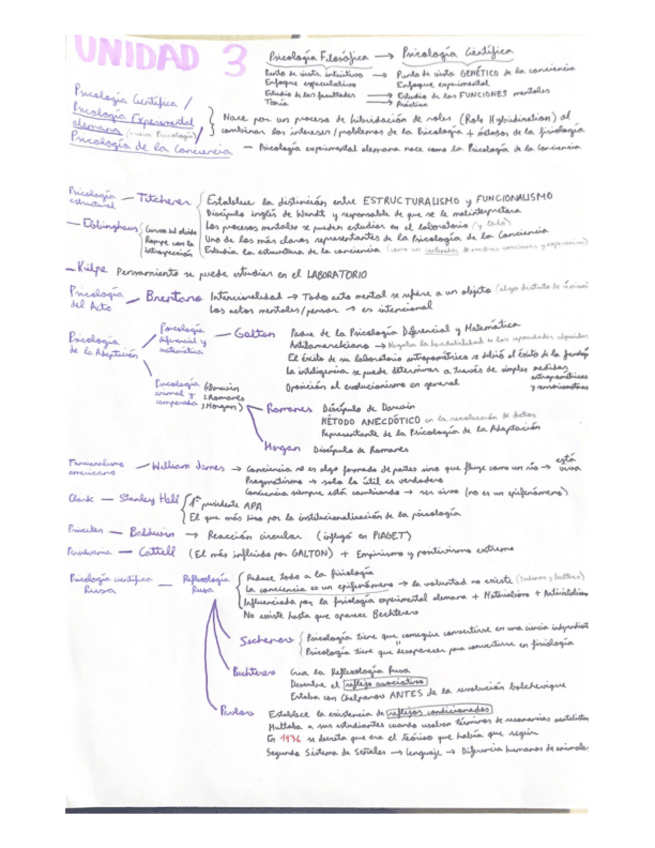 UNIDAD 3
Psicología Filosófica → Psicología Científica
Punto de vista intuitivo → Punto de vista GENÉTICO de la conciencia
Enfoque especulativo Enfoque experimental
Estudio de las facultades → Estudio de las FUNCIONES mentales
Teoría → Práctica
Psicología Científica /
Psicología Experimental
alemana (nueva Psicología) /
Psicología de la Conciencia
Nace por un proceso de hibridación de roles (Role Hybridization) al
combinar los intereses/problemas de la Psicología + métodos de la fisiología
— Psicología experimental alemana nace como la Psicología de la Conciencia
Psicología estructural — Titchener
Establece la distinción entre ESTRUCTURALISMO y FUNCIONALISMO
Discípulo inglés de Wundt y responsable de que se le malinterpretara
Los procesos mentales se pueden estudiar en el laboratorio (y todo)
Uno de los más claros representantes de la Psicología de la Conciencia
Estudia la estructura de la conciencia
— Ebbinghaus
Curva del olvido
Rompe con la
introspección
— Külpe Pensamiento se puede estudiar en el LABORATORIO
Psicología del Acto — Brentano
Intencionalidad → Todo acto mental se refiere a un objeto (algo distinto de sí mismo)
Los actos mentales/pensar → es intencional
Psicología de la Adaptación
Psicología diferencial y matemática — Galton
Padre de la Psicología Diferencial y Matemática
Antilamarckiano →
El éxito de su laboratorio antropométrico se debió al éxito de la
La inteligencia se puede determinar a través de simples medidas antropométricas
y sensoriomotoras
Oposición al evolucionismo en general
Psicología animal y comparada
(1 Darwin
2 Romanes
3 Morgan)
Romanes Discípulo de Darwin
MÉTODO ANECDÓTICO en la recolección de datos
Representante de la Psicología de la Adaptación
Morgan Discípulo de Romanes
Funcionalismo americano — William James → Conciencia no es algo formado de partes sino que fluye como un río → está viva
Pragmatismo → solo lo útil es verdadero
Conciencia siempre está cambiando → ser vivos (no es un epifenómeno)
Clark — Stanley Hall
1er presidente APA
El que más hizo por la institucionalización de la psicología
Princeton — Baldwin → Reacción circular (influyó en PIAGET)
— Cattell (El más influido por GALTON) + Empirismo y positivismo extremo
Psicología científica Rusa — Reflexología Rusa
Reduce todo a la fisiología
La conciencia es un epifenómeno → la voluntad no existe
Influenciada por la fisiología experimental alemana + Materialismo +
No existe hasta que aparece Bechterev
Sechenov
Psicología tiene que conseguir convertirse en una ciencia independiente
Psicología tiene que "desaparecer" para convertirse en fisiología
Bechterev Crea la Reflexología Rusa
Descubre el reflejo asociativo
Estaba con Chelpanov ANTES de la revolución bolchevique
Pavlov Establece la existencia de reflejos condicionados
Multaba a sus estudiantes cuando usaban términos de resonancias
En 1936 se decreta que era el teórico que había que seguir
Segundo Sistema de Señales → Lenguaje → Diferencia humanos de animales